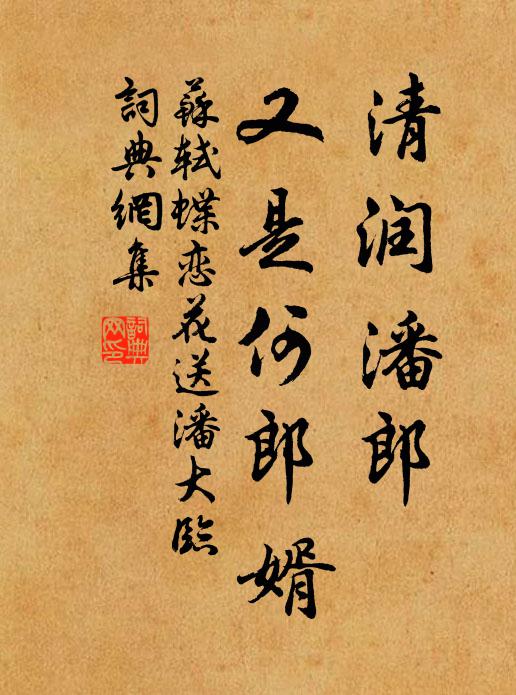 清润潘郎
又是何郎婿
蘇軾蝶恋花送潘大臨
詞典網集
詞典
网印